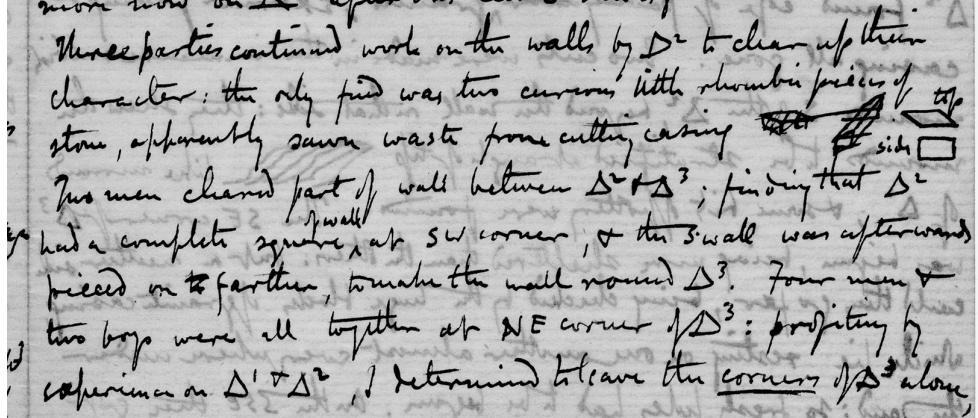 more now on
Three parties continued work on the walls by Δ² to clear up their
character: the only find was two curious little rhombic pieces of
stone, apparently sawn waste from cutting casing top
side
Two men cleared part of wall between Δ² & Δ³; finding that Δ²
had a complete square of wall, at SW corner, & the S wall was afterwards
pieced on farther, to make the wall round Δ³. Four men &
two boys were all together at NE corner of Δ³: profiting by
experience on Δ¹ & Δ², I determined to leave the corners of Δ³ alone,